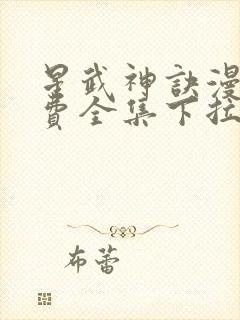 星武神訣漫
費全集下拉
布蕾